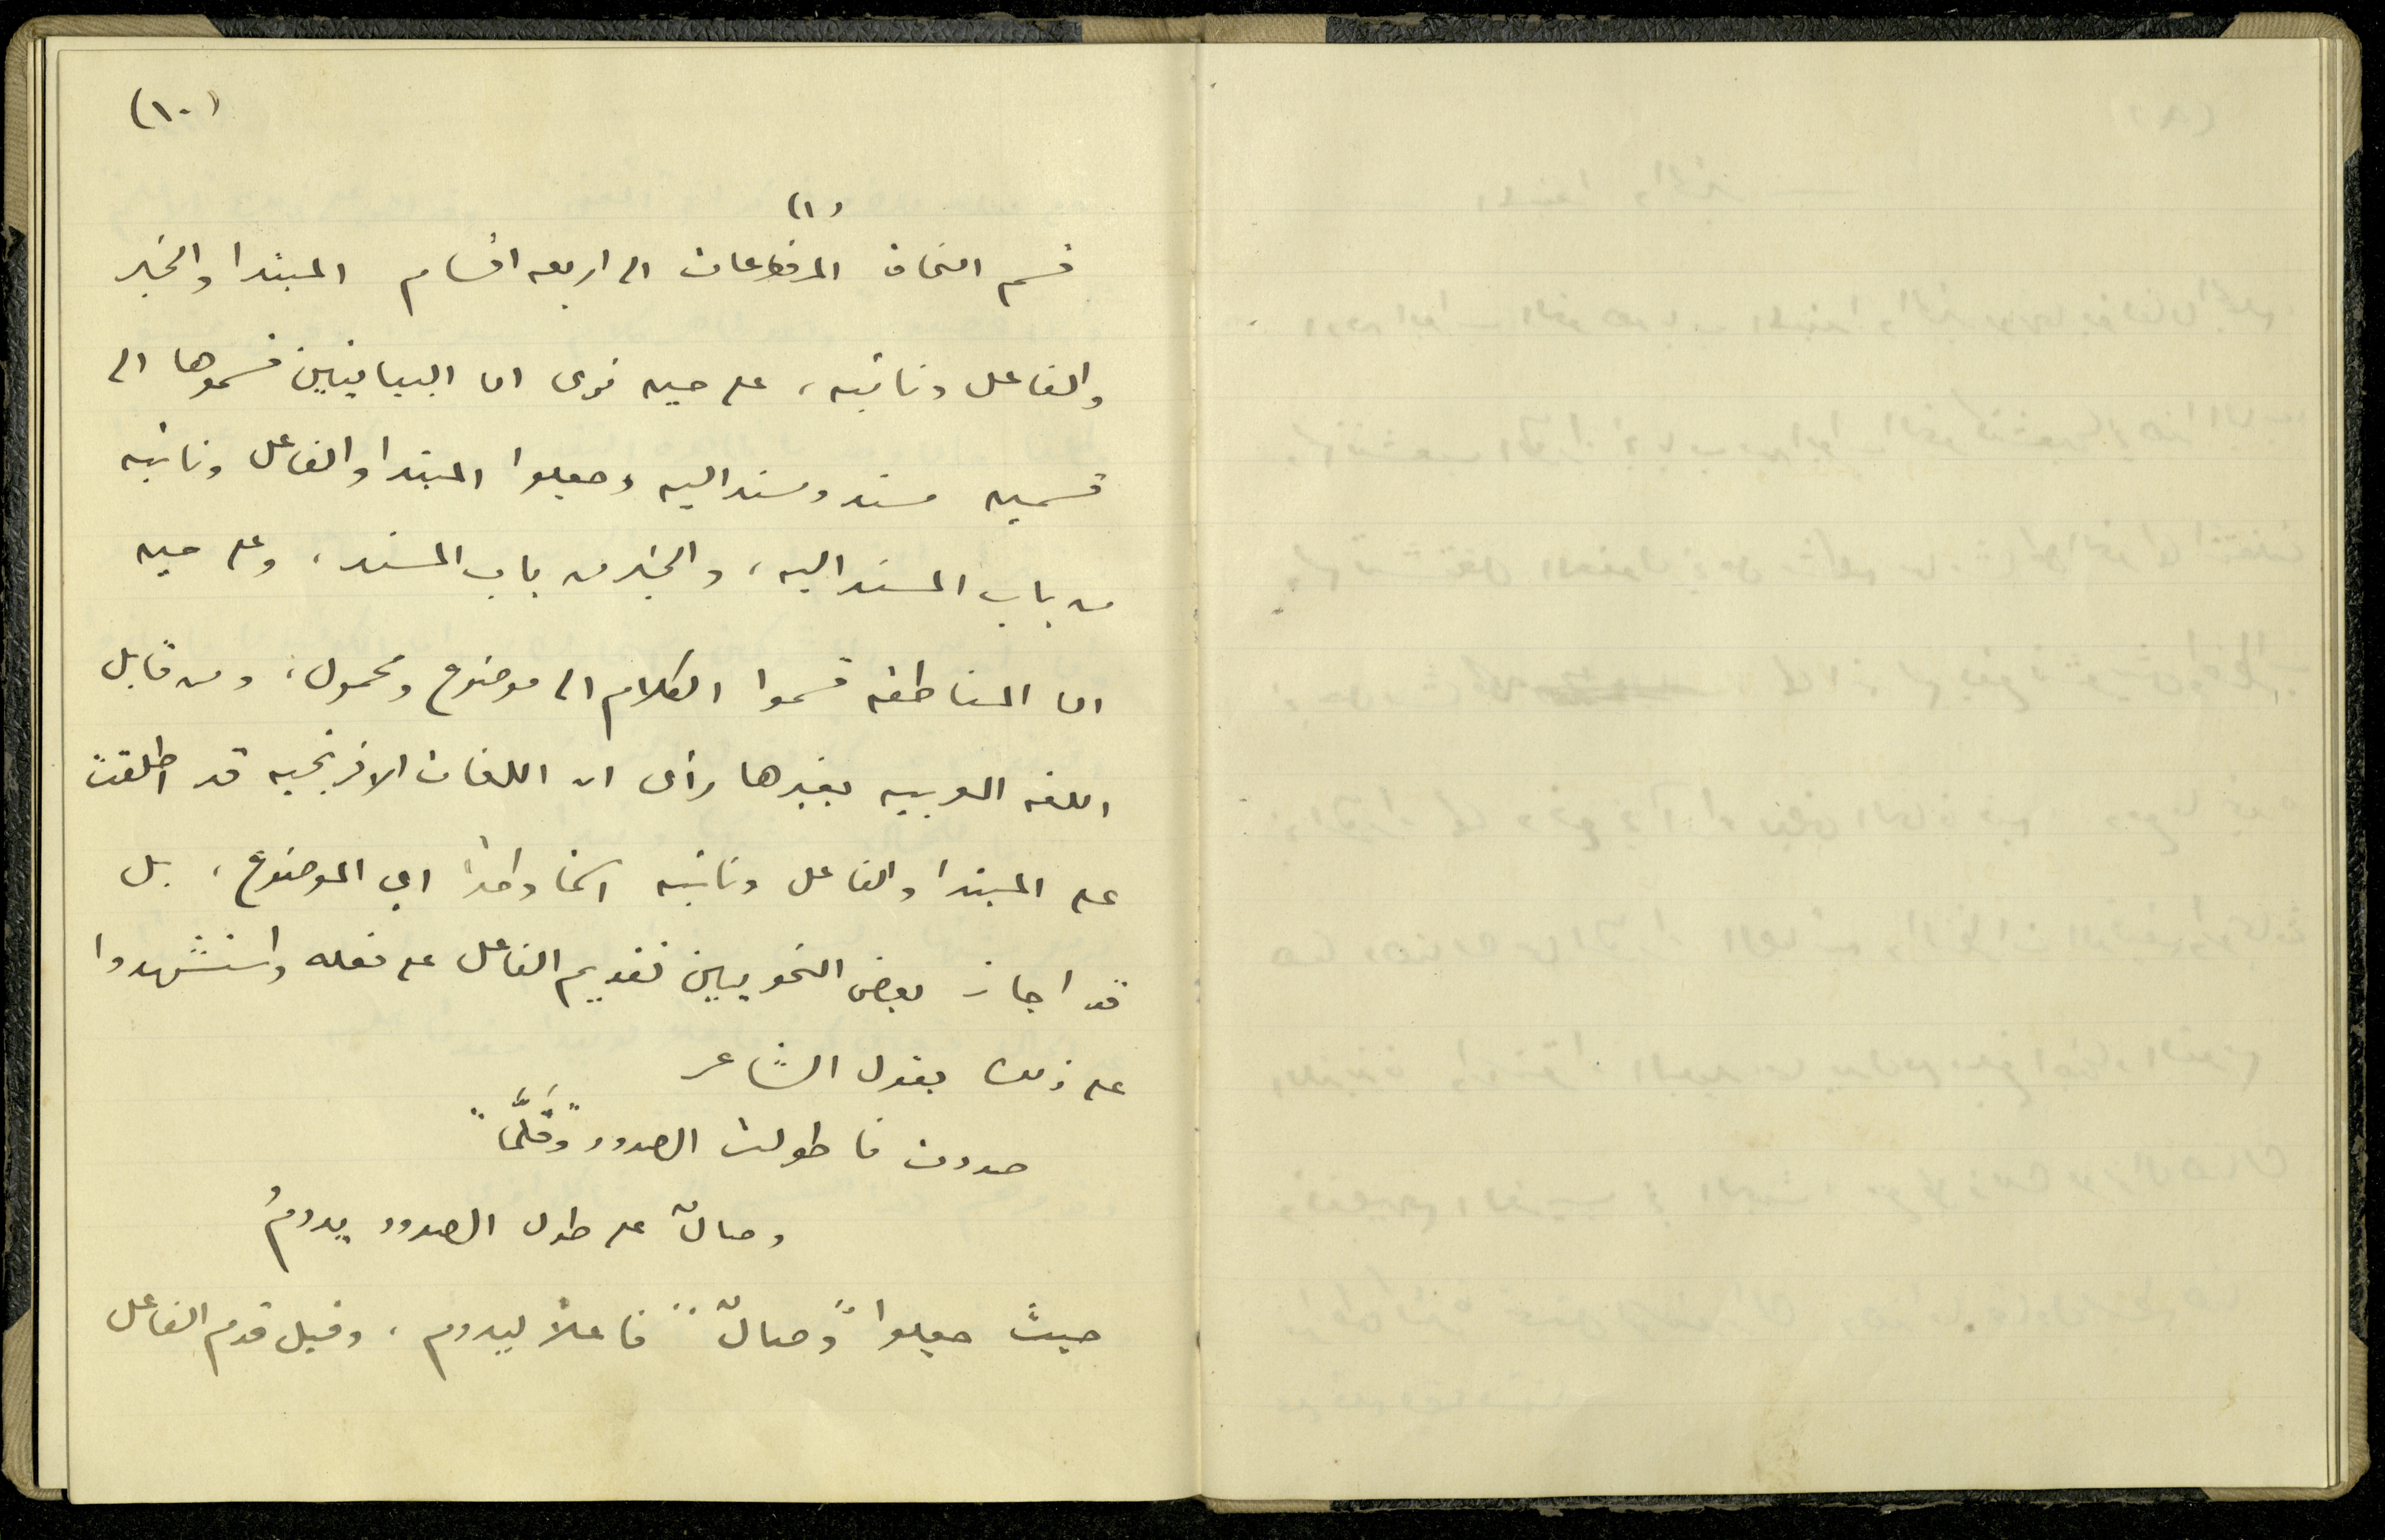 (١٠)
(١)
قسم النحاة المرفوعات الى اربعه اقسام المبتدا والخبر
والفاعل ونائبه، على حين نرى ان البيانيين قسموها الى
قسمين مسند ومسند اليه وجعلوا المبتدا والفاعل ونائبه
من باب المسند اليه، والخبر من باب المسند، وعلى حين
ان المناطقه قسموا الكلام الى موضوع ومحمول، ومن قابل
اللغه العربيه بغيرها رأى ان اللغات الافرنجيه قد اطلقت
على المبتدا والفاعل ونائبه اسمًا واحدًا اي الموضوع، بل
قد اجاز بعض النحويين تقديم الفاعل على فعله واستشهدوا
على ذلك بقول الشاعر
صددت فاطولت الصدود "وقَلَّمَا"
وصالٌ على طول الصدود يدومُ
حيث جعلوا "وصالٌ" فاعلاً ليدوم، وقيل قدم الفاعل